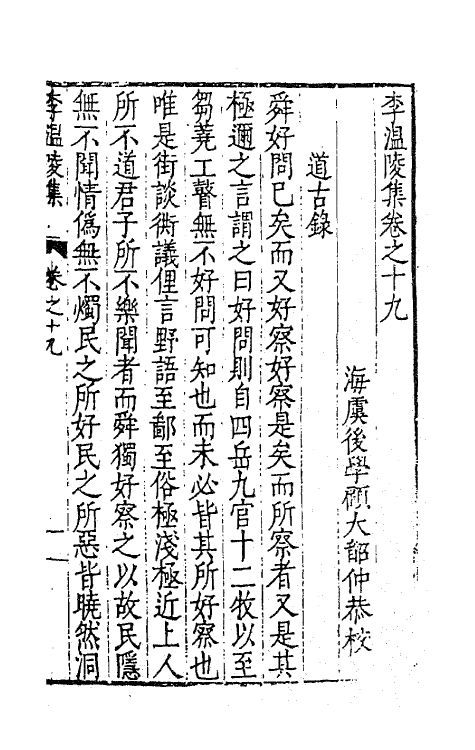 李溫陵集卷之十九
海虞後學顧大韶仲恭校
道古錄
舜好問已矣而又好察好察是矣而所察者又是其
極邇之言謂之曰好問則自四岳九官十二牧以至
芻蕘工瞽無不好問可知也而未必皆其所好察也
唯是街談衖議俚言野語至鄙至俗極淺極近上人
所不道君子所不樂聞者而舜獨好察之以故民隱
無不聞情偽無不燭民之所好民之所惡皆曉然洞
李溫陵集
卷之十九
一